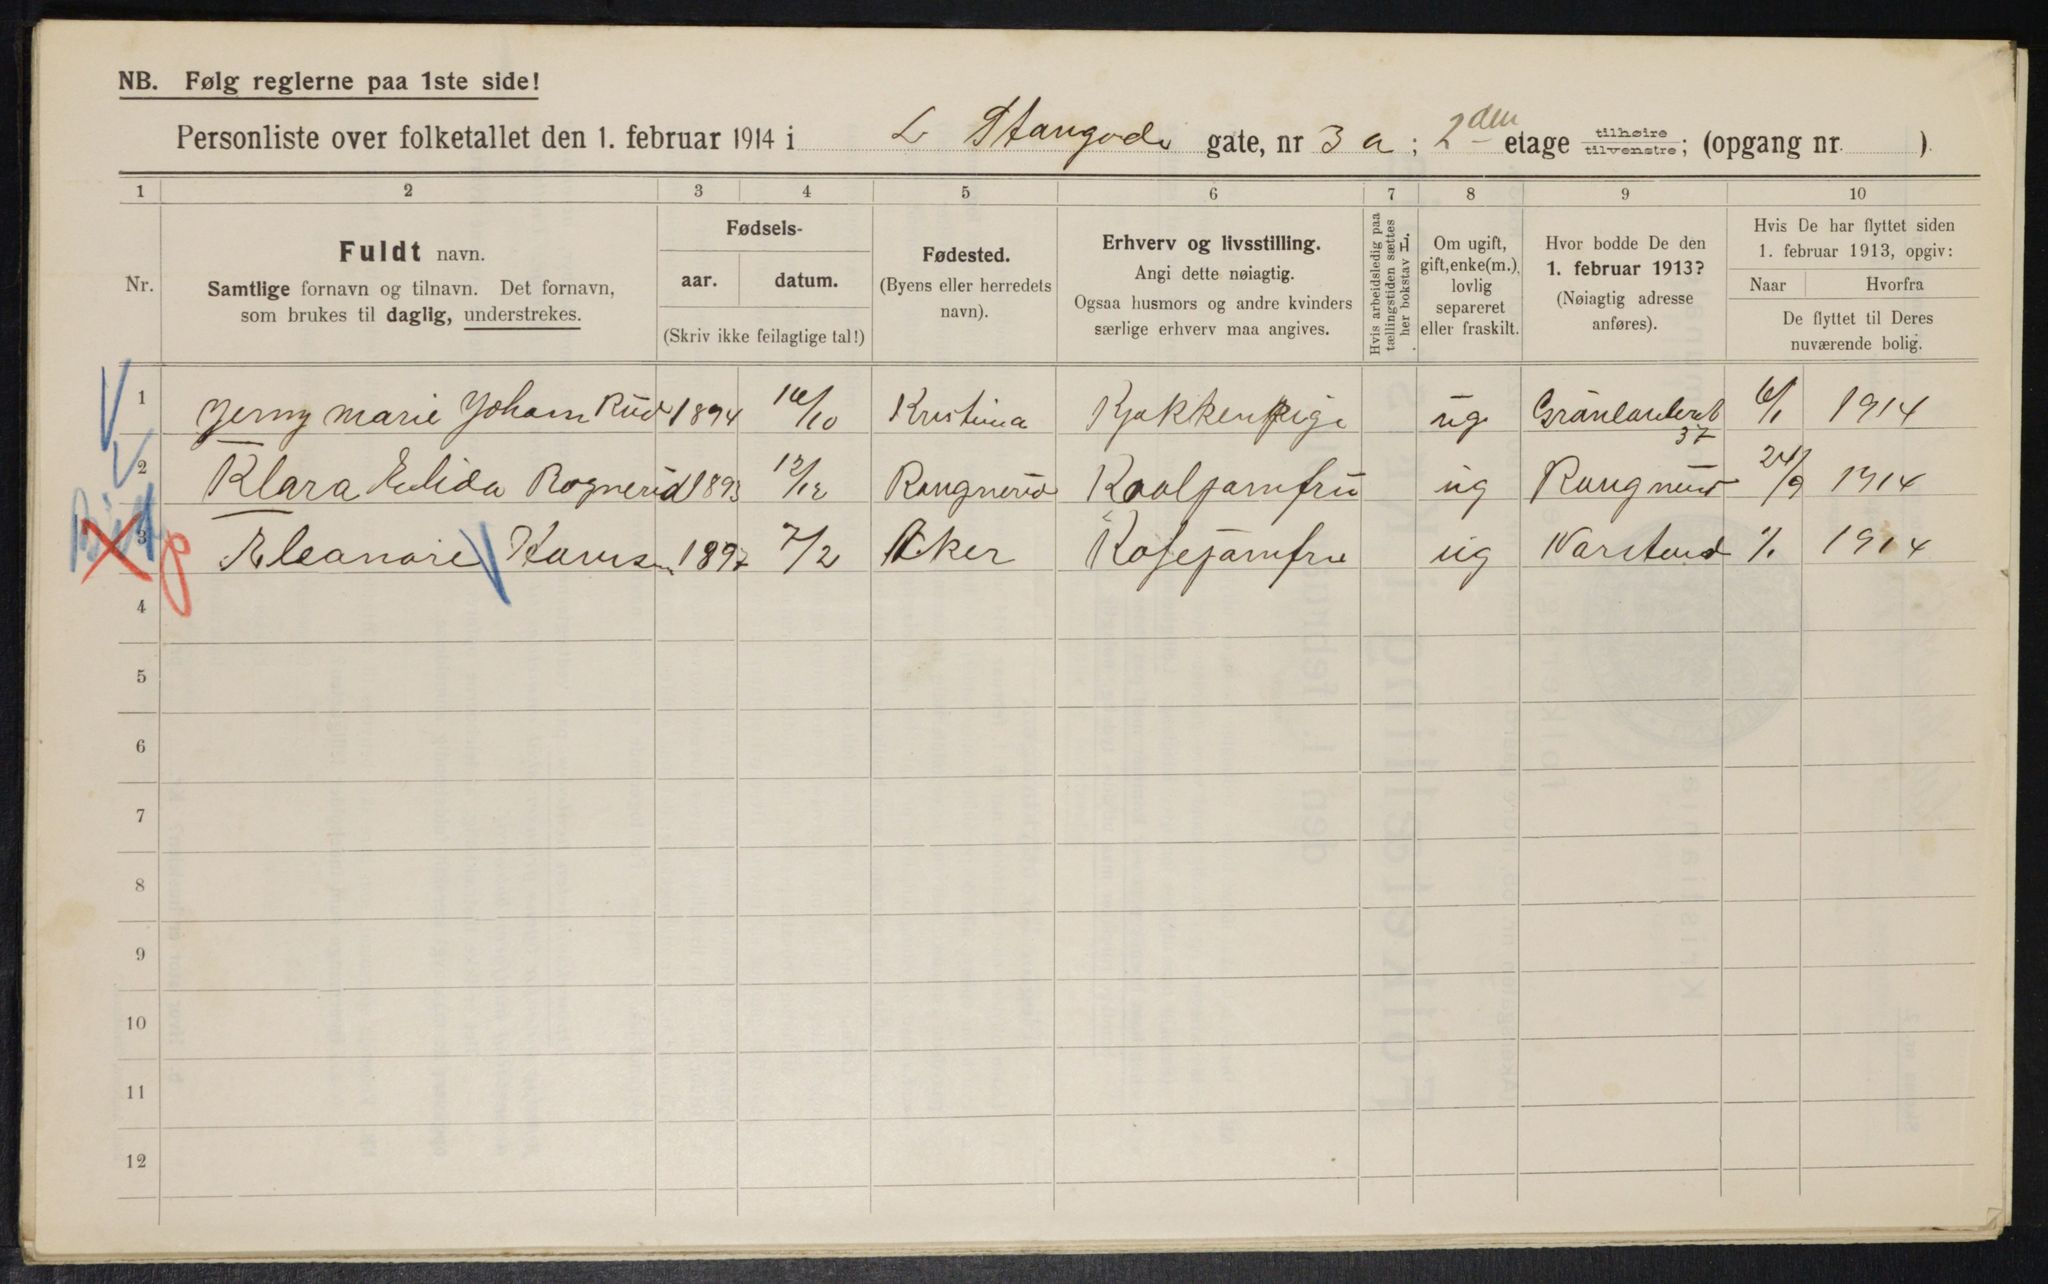 NB. Følg reglerne paa 1ste side!
Personliste over folketallet den 1. februar 1914 i L Stangade gate, nr 3 a; 2den etage tilhøire/tilvenstre; (opgang nr. )
1 2 3 4 5 6 7 8 9 10
Nr.
Fuldt navn.
Samtlige fornavn og tilnavn. Det fornavn,
som brukes til daglig, understrekes.
Fødsels-
aar. datum.
(Skriv ikke feilagtige tal!)
Fødested.
(Byens eller herredets
navn).
Erhverv og livsstilling.
Angi dette nøiagtig.
Ogsaa husmors og andre kvinders
særlige erhverv maa angives.
Hvis arbeidsledig paa
tællingstiden sættes
her bokstav H.
Om ugift,
gift, enke(m.),
lovlig
separeret
eller fraskilt.
Hvor bodde De den
1. februar 1913?
(Nøiagtig adresse
anføres).
Hvis De har flyttet siden
1. februar 1913, opgiv:
Naar Hvorfra
De flyttet til Deres
nuværende bolig.
1 Jenny Marie Johan Rud 1894 16/10 Kristina Kjøkkenpige ug Grønlandsret 37 6/1 1914
2 Klara Elida Rognerud 1893 12/12 Rangnerud ug 24/9 1914
3 Eleanore 1897 7/2 Aker ug 1914
4
5
6
7
8
9
10
11
12